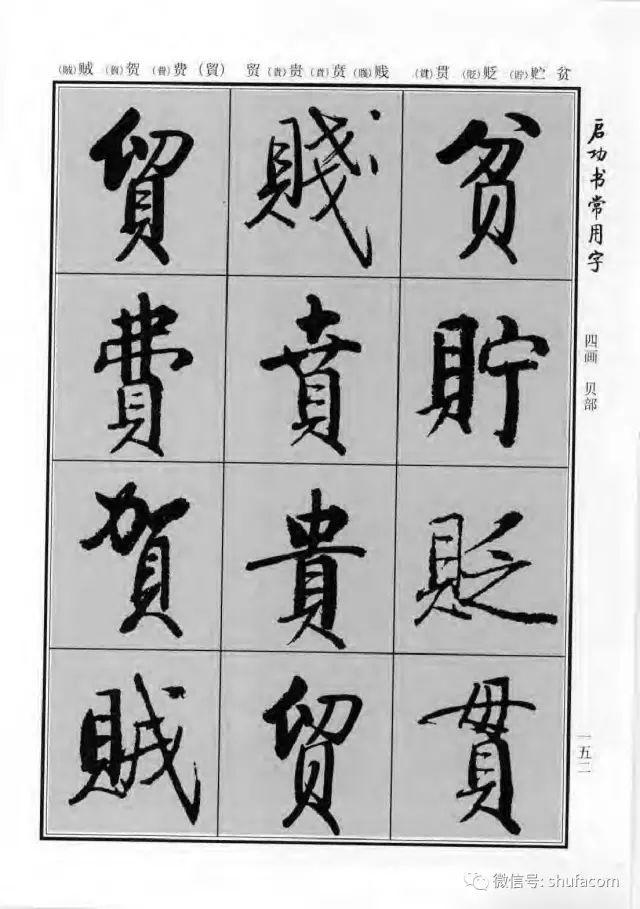 启功书常用字
四画 贝部
一五二
贫 贮(貯) 贬(貶) 贯(貫) 贱(賤) 贲(賁) 贵(貴) 贸 (貿) 费(費) 贺(賀) 贼(賊)
贫貯貶貫
賤賁貴贸
貿費賀賊
微信号: shufacom